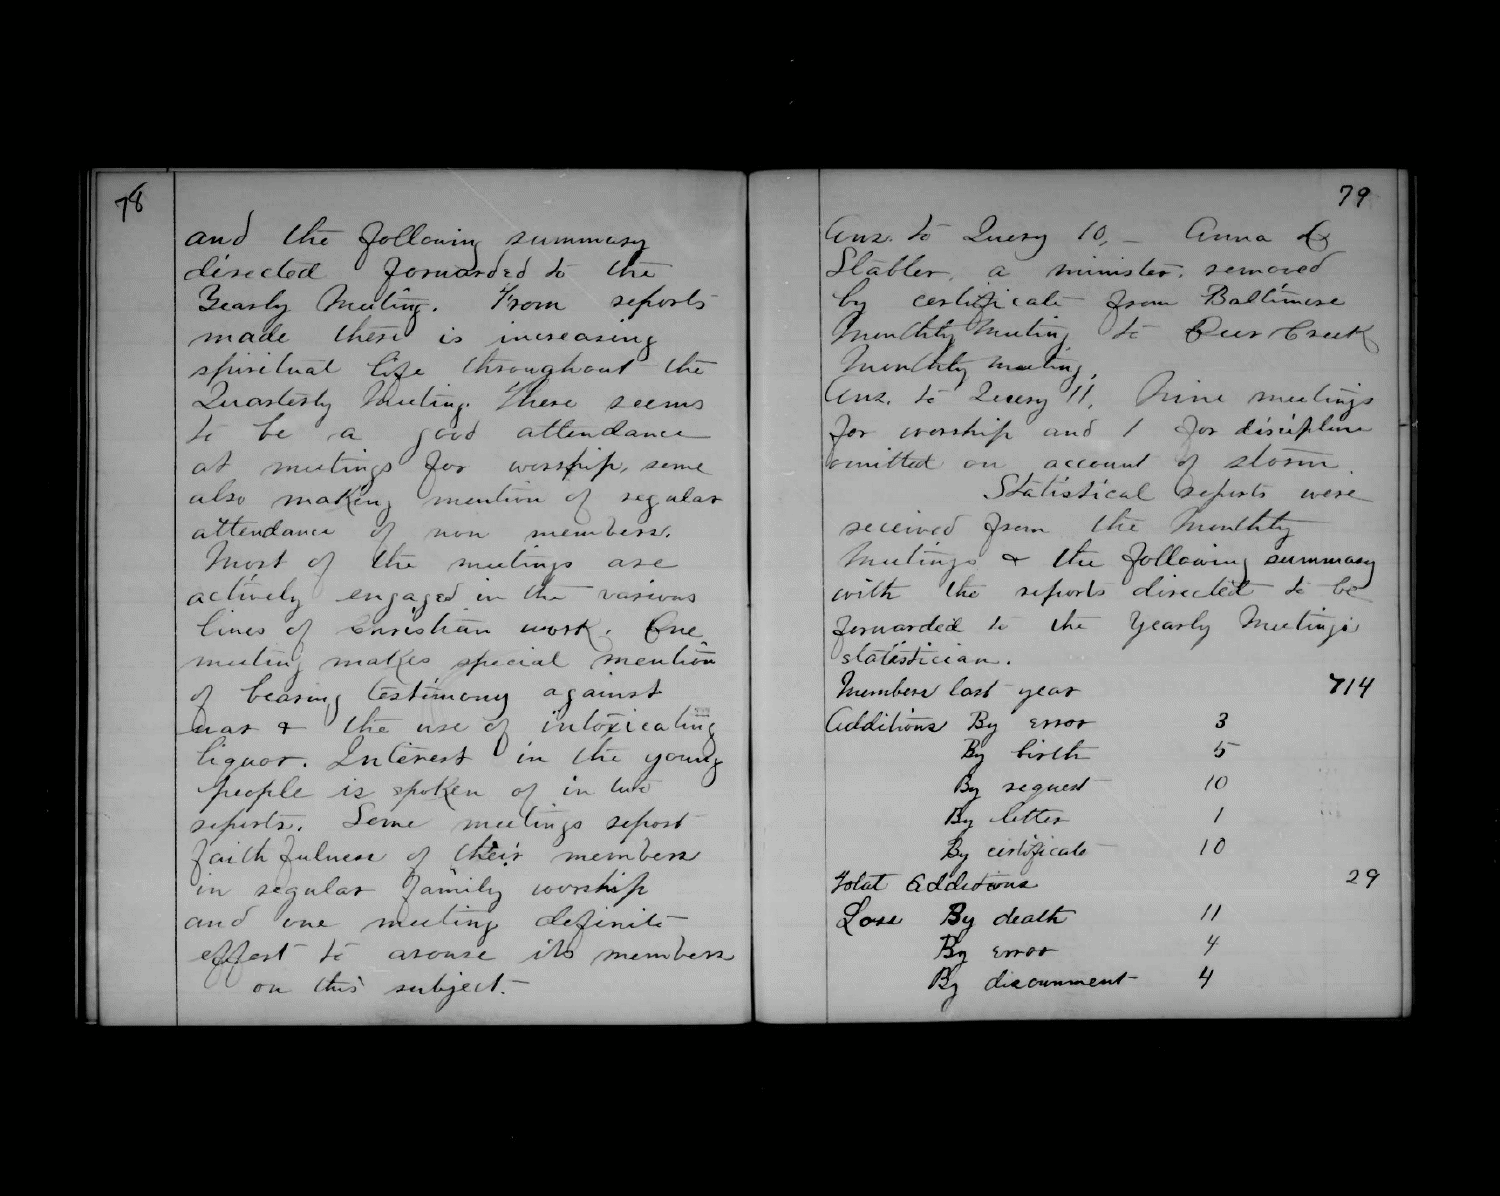 78
and the following summary
directed forwarded to the
Yearly Meeting. From reports
made there is increasing
spiritual life throughout the
Quarterly Meeting. There seems
to be a good attendance
at meetings for worship, some
also making mention of regular
attendance of non members.
Most of the meetings are
actively engaged in the various
lines of Christian work. One
meeting makes special mention
of bearing testimony against
war & the use of intoxicating
liquor. Interest in the young
people is spoken of in two
reports. Some meetings report
faithfulness of their members
in regular family worship
and one meeting definite
effort to arouse its members
on this subject.-
79
Ans. to Query 10, - Anna
Stabler, a minister, removed
by certificate from Baltimore
Monthly Meeting to Deer Creek
Monthly meeting.
Ans. to Query 11, Nine meetings
for worship and 1 for discipline
omitted on account of storm.
Statistical reports were
received from the Monthly
Meetings & the following summary
with the reports directed to be
forwarded to the Yearly Meetings
statistician.
Members last year 714
Additions By error 3
By birth 5
By request 10
By letter 1
By certificate 10
Total Additions 29
Loss By death 11
By error 4
By disownment 4